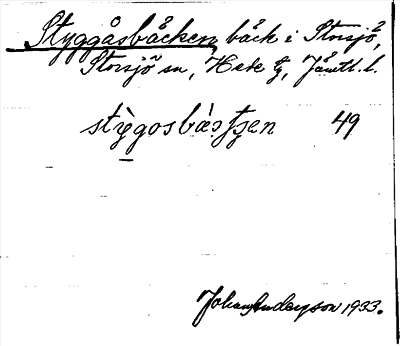 Styggåsbäcken, bäck i Storsjö,
Storsjö sn, Hede tg, Jämtl. l.
stỳgosbæ̀sʈʂen 49
Johan Anderson 1933.